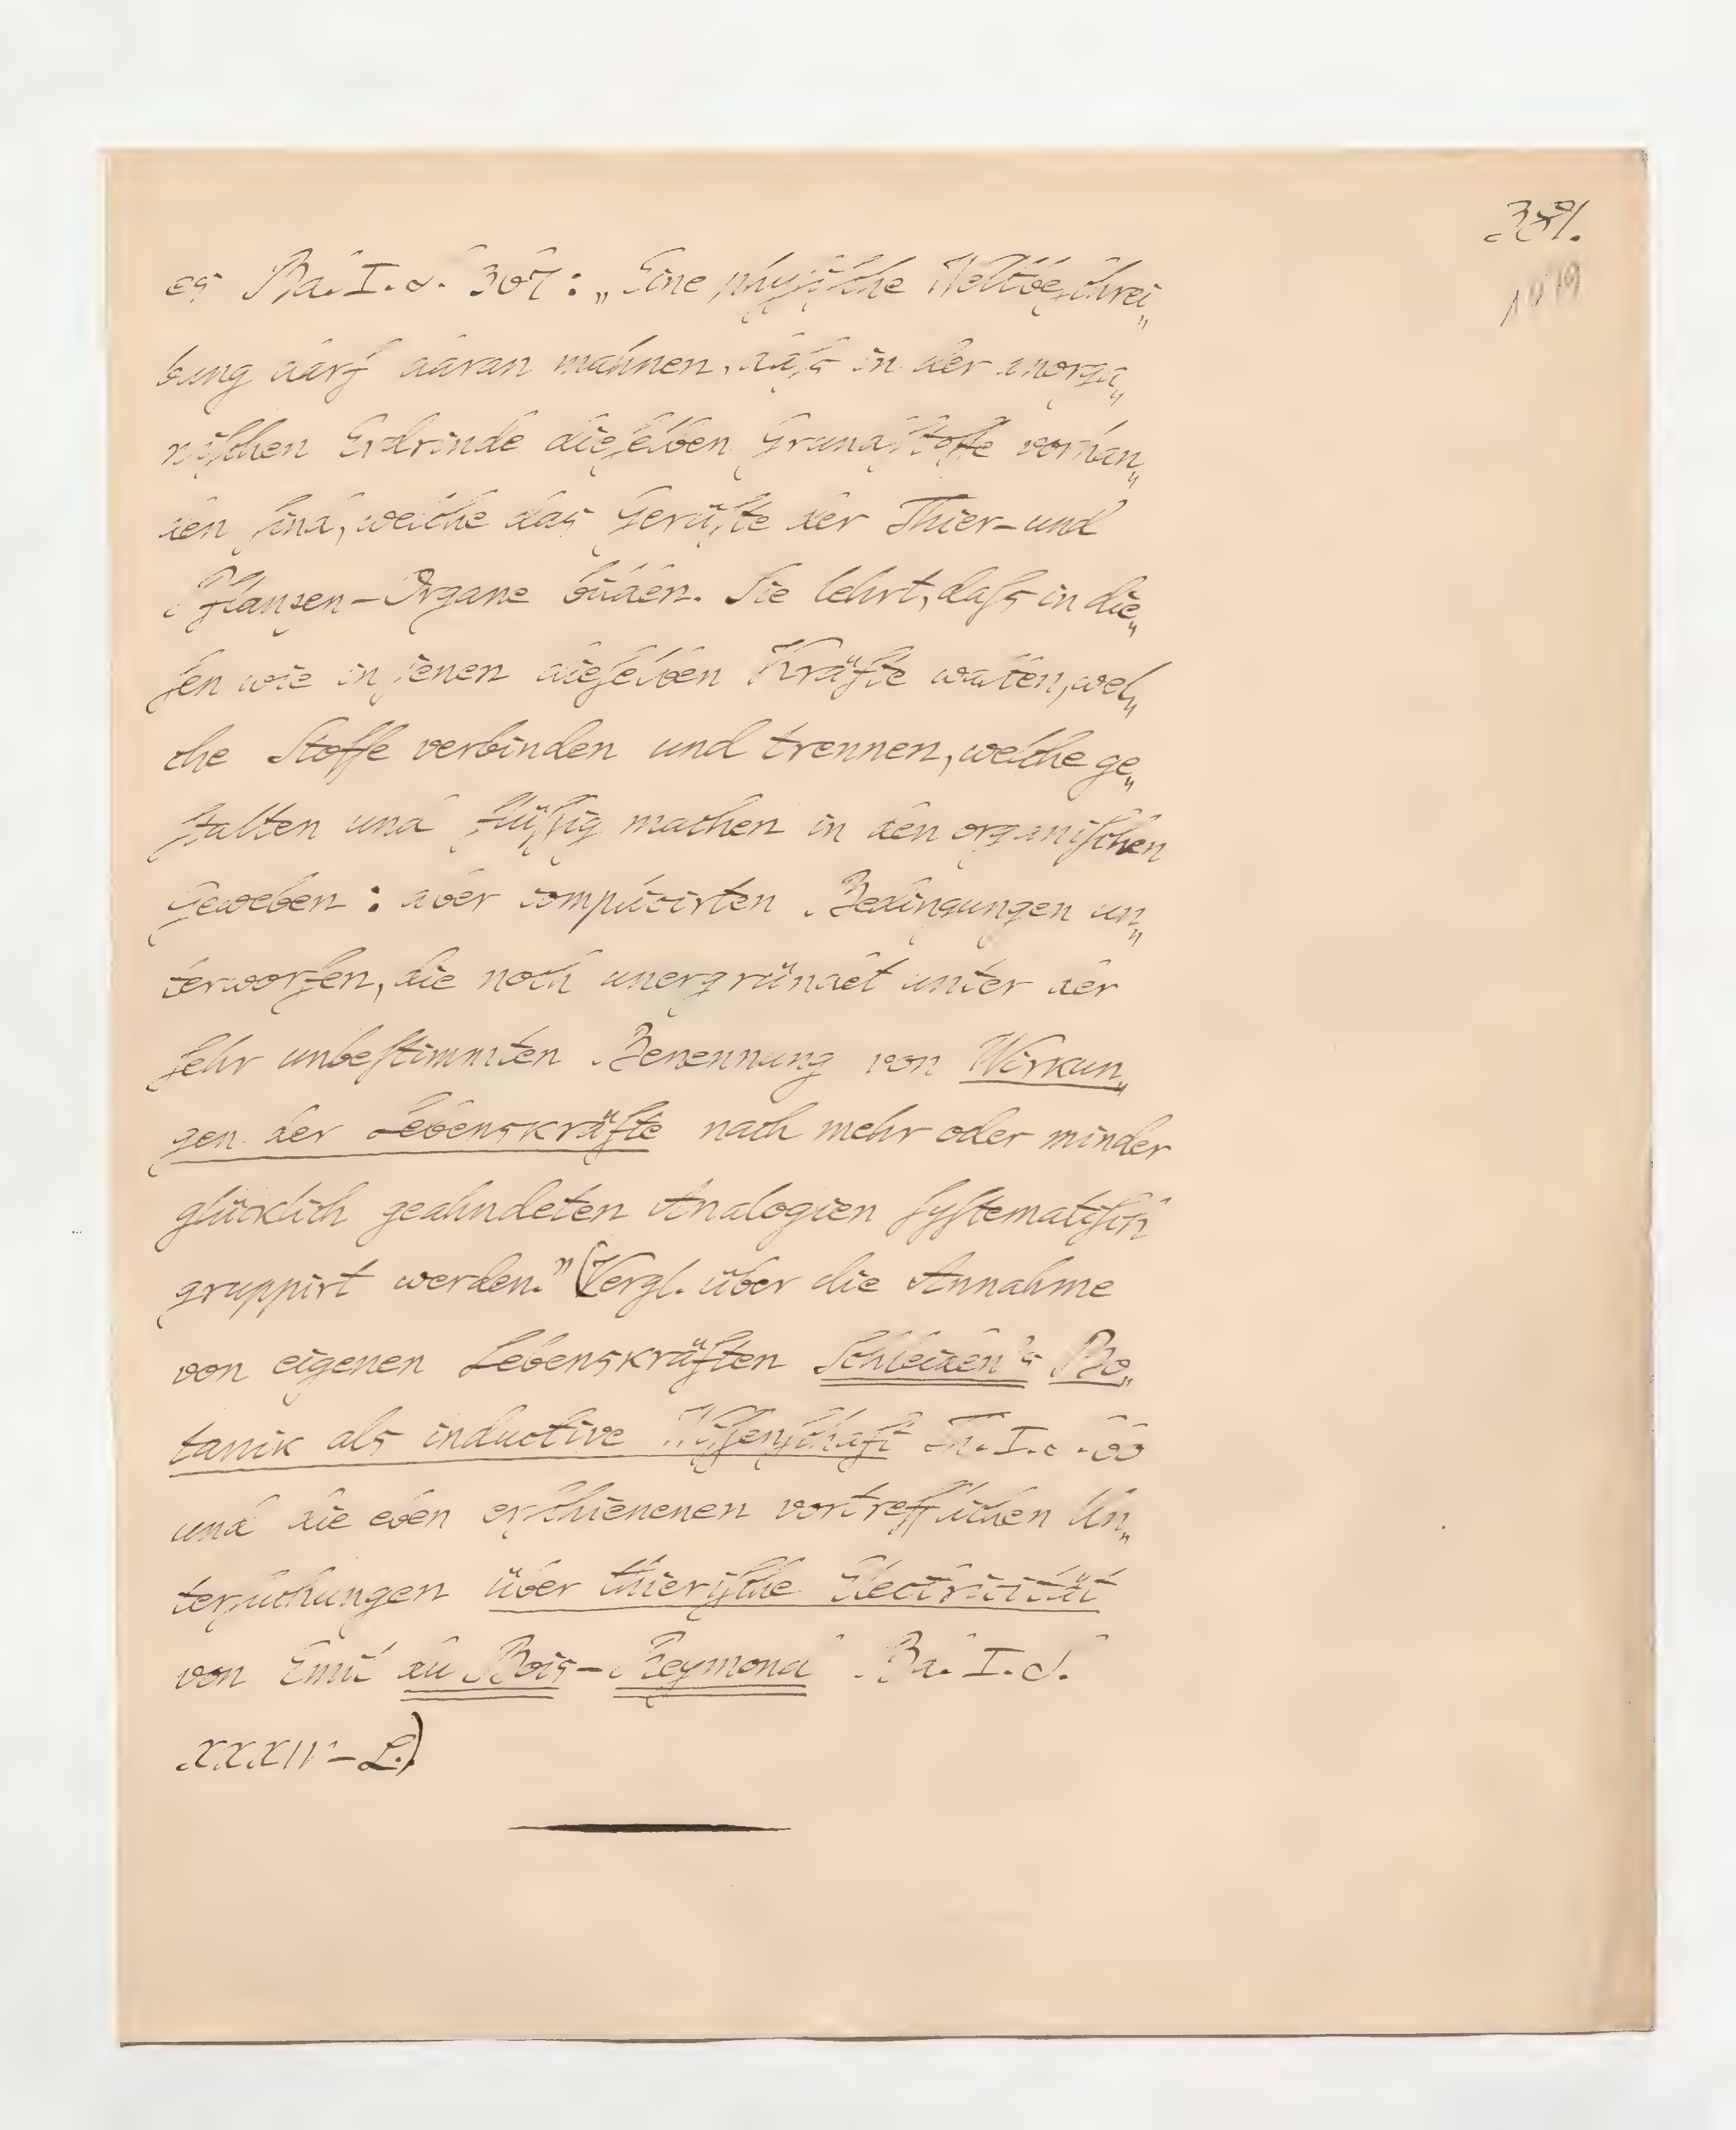 381.
es Bd. I. S. 367: „Eine phyſiſche Weltbeſchrei„
bung darf daran mahnen, daſs in der anorga„
niſchen Erdrinde dieſelben Grundſtoffe vorhan„
den ſind, welche das Gerüſte der Thier- und
Pflanzen-Organe bilden. Sie lehrt, daſs in die„
ſen wie in jenen dieſelben Kräfte walten, wel„
che Stoffe verbinden und trennen, welche ge„
ſtalten und flüſſig machen in den organiſchen
Geweben: aber complicirten Bedingungen un„
terworfen, die noch unergründet unter der
ſehr unbeſtimmten Benennung von Wirkun„
gen der Lebenskräfte nach mehr oder minder
glücklich geahndeten Analogien ſyſtematiſch
gruppirt werden.” (Vergl. über die Annahme
von eigenen Lebenskräften Schleiden's Bo„
tanik als inductive Wiſſenſchaft Th. I. S. 60
und die eben erſchienenen vortrefflichen Un„
terſuchungen über thieriſche Electricität
von Emil du Bois-Reymond Bd. I. S.
XXXIV–L.)